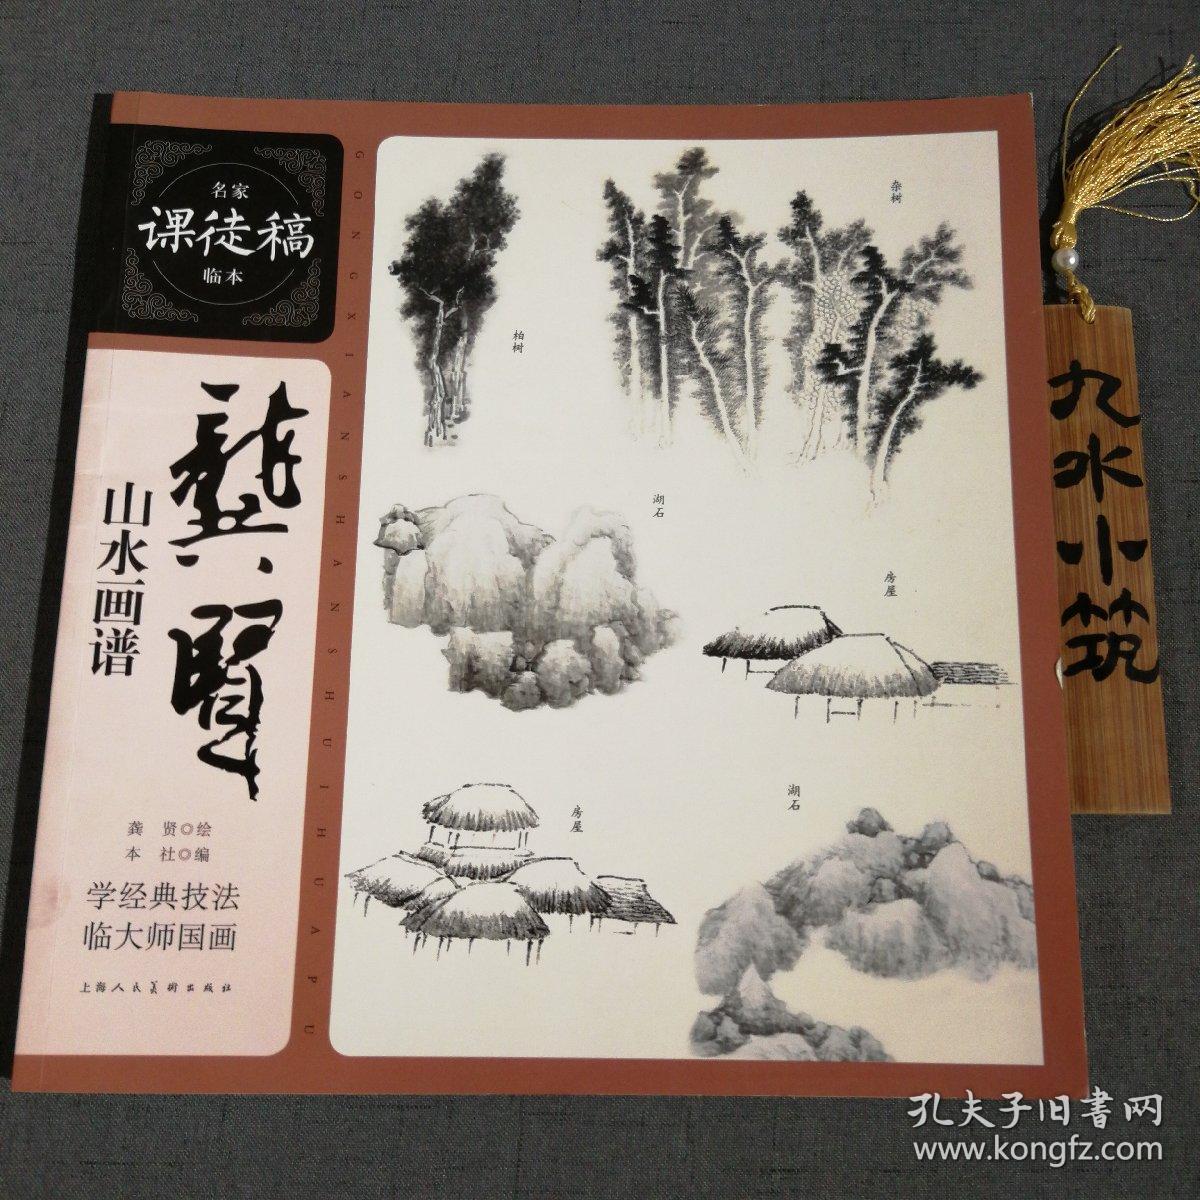 名家
课徒稿
临本
龚贤
山水画谱
龚 贤◎绘
本 社◎编
学经典技法
临大师国画
上海人民美術出版社
GONGXIANSHANSHUIHUAPU
柏树
杂树
湖石
房屋
房屋
湖石
九水小筑
孔夫子旧書网
www.kongfz.com